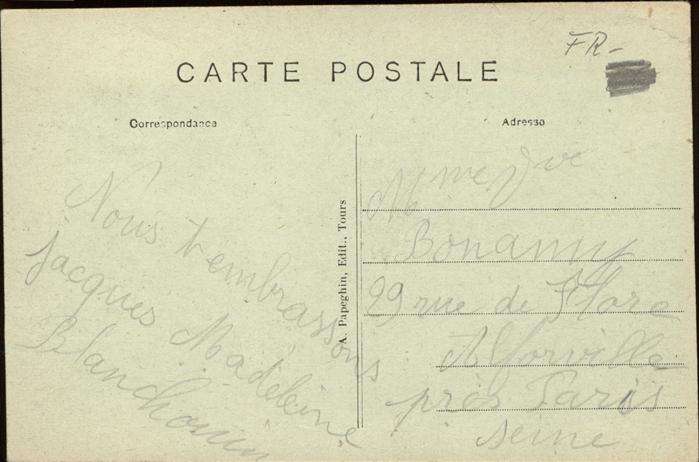 FR-
CARTE POSTALE
Correspondance
Adresse
Nous t'embrassons
Jacques Madeleine
A. Papeghin, Edit., Tours
Mme Jve
Bonamy
29 rue de Flore
Alforville
près Paris
Seine